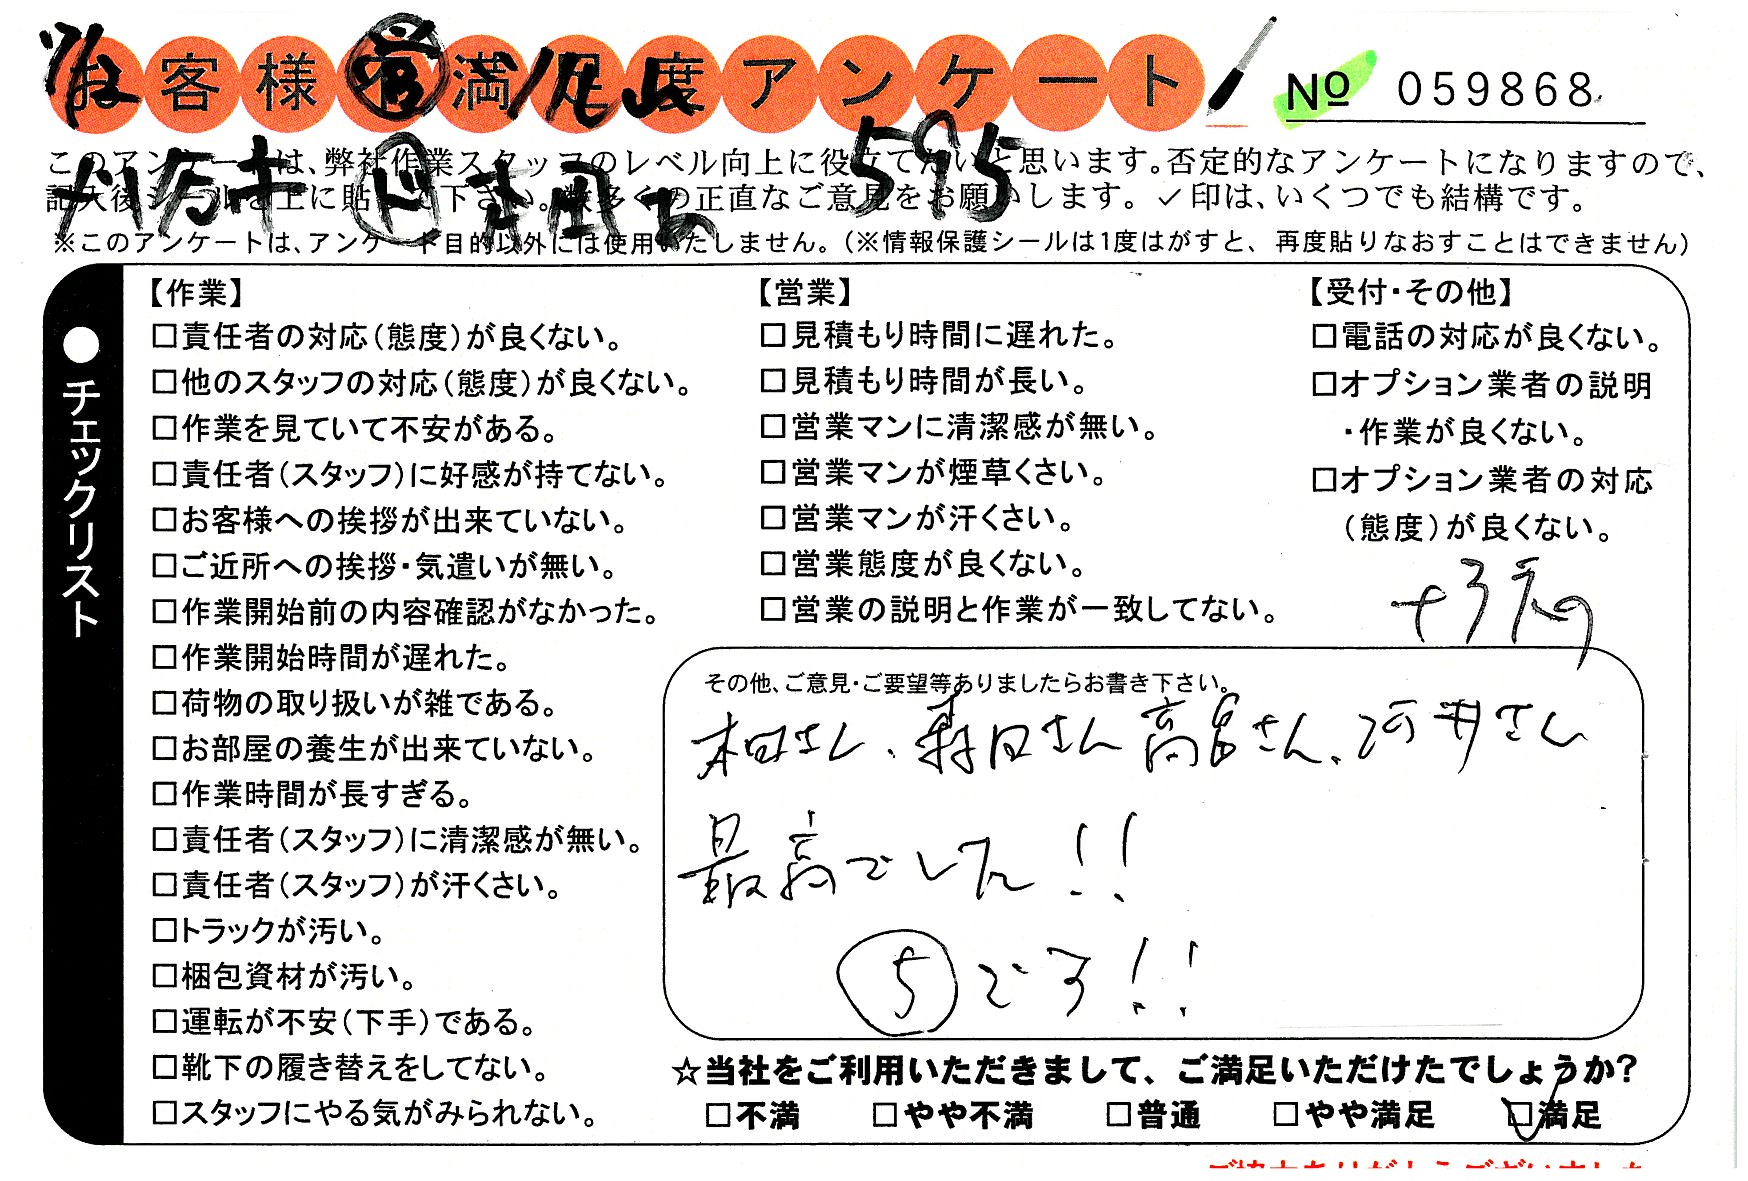 お客様不満足度アンケート
No 059868
このアンケートは、弊社作業スタッフのレベル向上に役立てたいと思います。否定的なアンケートになりますので、
記入後シールを上に貼って下さい。数多くの正直なご意見をお願いします。✓印は、いくつでも結構です。
595
※このアンケートは、アンケート目的以外には使用いたしません。(※情報保護シールは1度はがすと、再度貼りなおすことはできません)
●チェックリスト
【作業】
□責任者の対応(態度)が良くない。
□他のスタッフの対応(態度)が良くない。
□作業を見ていて不安がある。
□責任者(スタッフ)に好感が持てない。
□お客様への挨拶が出来ていない。
□ご近所への挨拶・気遣いが無い。
□作業開始前の内容確認がなかった。
□作業開始時間が遅れた。
□荷物の取り扱いが雑である。
□お部屋の養生が出来ていない。
□作業時間が長すぎる。
□責任者(スタッフ)に清潔感が無い。
□責任者(スタッフ)が汗くさい。
□トラックが汚い。
□梱包資材が汚い。
□運転が不安(下手)である。
□靴下の履き替えをしてない。
□スタッフにやる気がみられない。
【営業】
□見積もり時間に遅れた。
□見積もり時間が長い。
□営業マンに清潔感が無い。
□営業マンが煙草くさい。
□営業マンが汗くさい。
□営業態度が良くない。
□営業の説明と作業が一致してない。
【受付・その他】
□電話の対応が良くない。
□オプション業者の説明
・作業が良くない。
□オプション業者の対応
(態度)が良くない。
その他、ご意見・ご要望等ありましたらお書き下さい。
さん、森田さん 高富さん、河井さん
最高でした!!
⑤です!!
☆当社をご利用いただきまして、ご満足いただけたでしょうか?
□不満 □やや不満 □普通 □やや満足 ☑満足